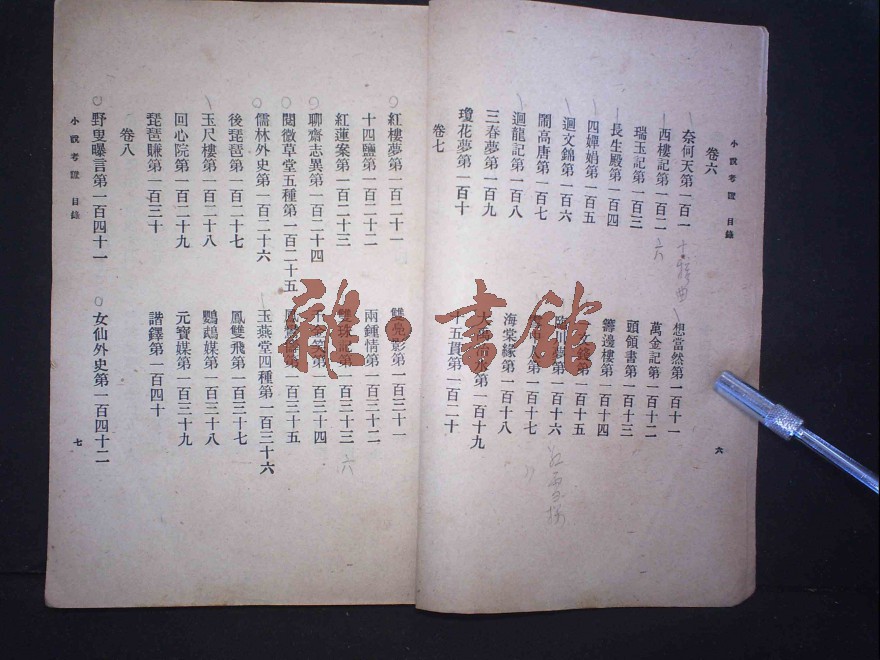 小說考證 目錄
六
卷六
奈何天第一百一
西樓記第一百二
瑞玉記第一百三
長生殿第一百四
四嬋娟第一百五
迴文錦第一百六
鬧高唐第一百七
迴龍記第一百八
三春夢第一百九
瓊花夢第一百十
想當然第一百十一
萬金記第一百十二
頭領書第一百十三
籌邊樓第一百十四
第一百十五
第一百十六
第一百十七
海棠緣第一百十八
第一百十九
十五貫第一百二十
卷七
紅樓夢第一百二十一
十四鹽第一百二十二
紅蓮案第一百二十三
聊齋志異第一百二十四
閱微草堂五種第一百二十五
儒林外史第一百二十六
後琵琶第一百二十七
玉尺樓第一百二十八
回心院第一百二十九
琵琶賺第一百三十
雙亮影第一百三十一
兩鍾情第一百三十二
雙珠記第一百三十三
第一百三十四
第一百三十五
玉燕堂四種第一百三十六
鳳雙飛第一百三十七
鸚鵡媒第一百三十八
元寶媒第一百三十九
諧鐸第一百四十
卷八
野叟曝言第一百四十一
女仙外史第一百四十二
小說考證 目錄
七
雜·書館